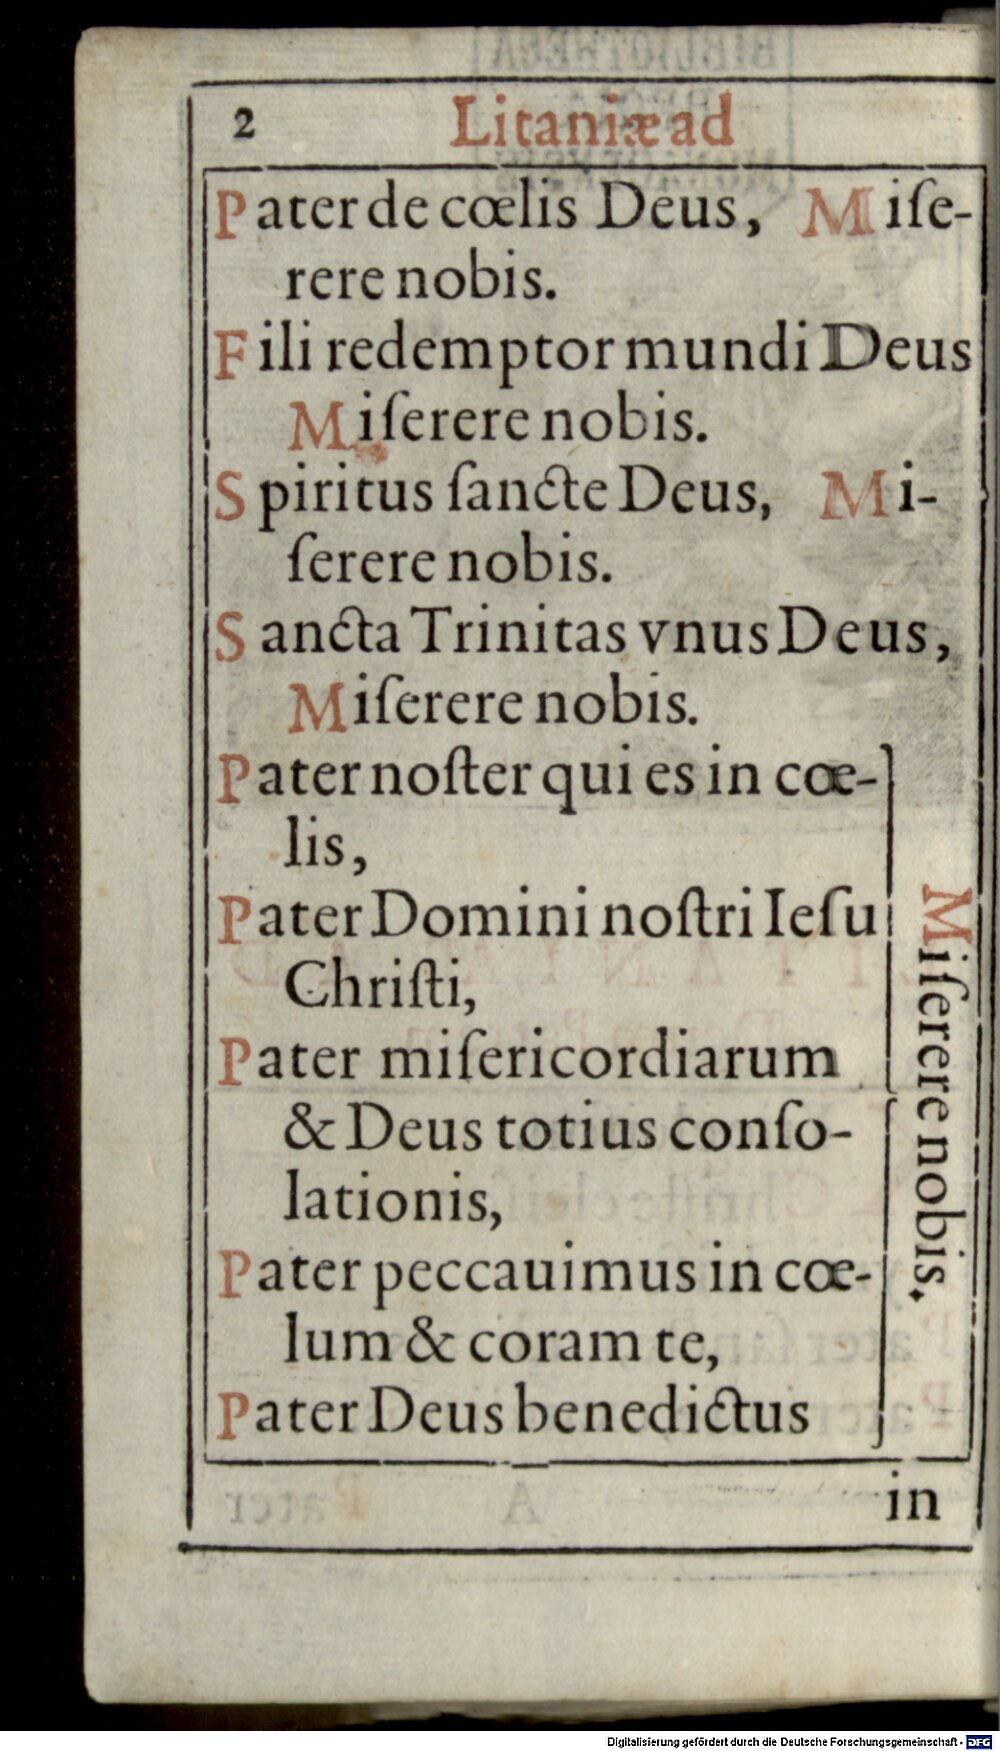 2 Litaniæ ad
Pater de cœlis Deus, Miſe-
rere nobis.
Fili redemptor mundi Deus
Miſerere nobis.
Spiritus ſancte Deus, Mi-
ſerere nobis.
Sancta Trinitas vnus Deus,
Miſerere nobis.
Pater noſter qui es in cœ-
lis,
Pater Domini noſtri Ieſu
Chriſti,
Pater miſericordiarum
& Deus totius conſo-
lationis,
Pater peccauimus in cœ-
lum & coram te,
Pater Deus benedictus
Miſerere nobis.
in
Digitalisierung gefördert durch die Deutsche Forschungsgemeinschaft - DFG